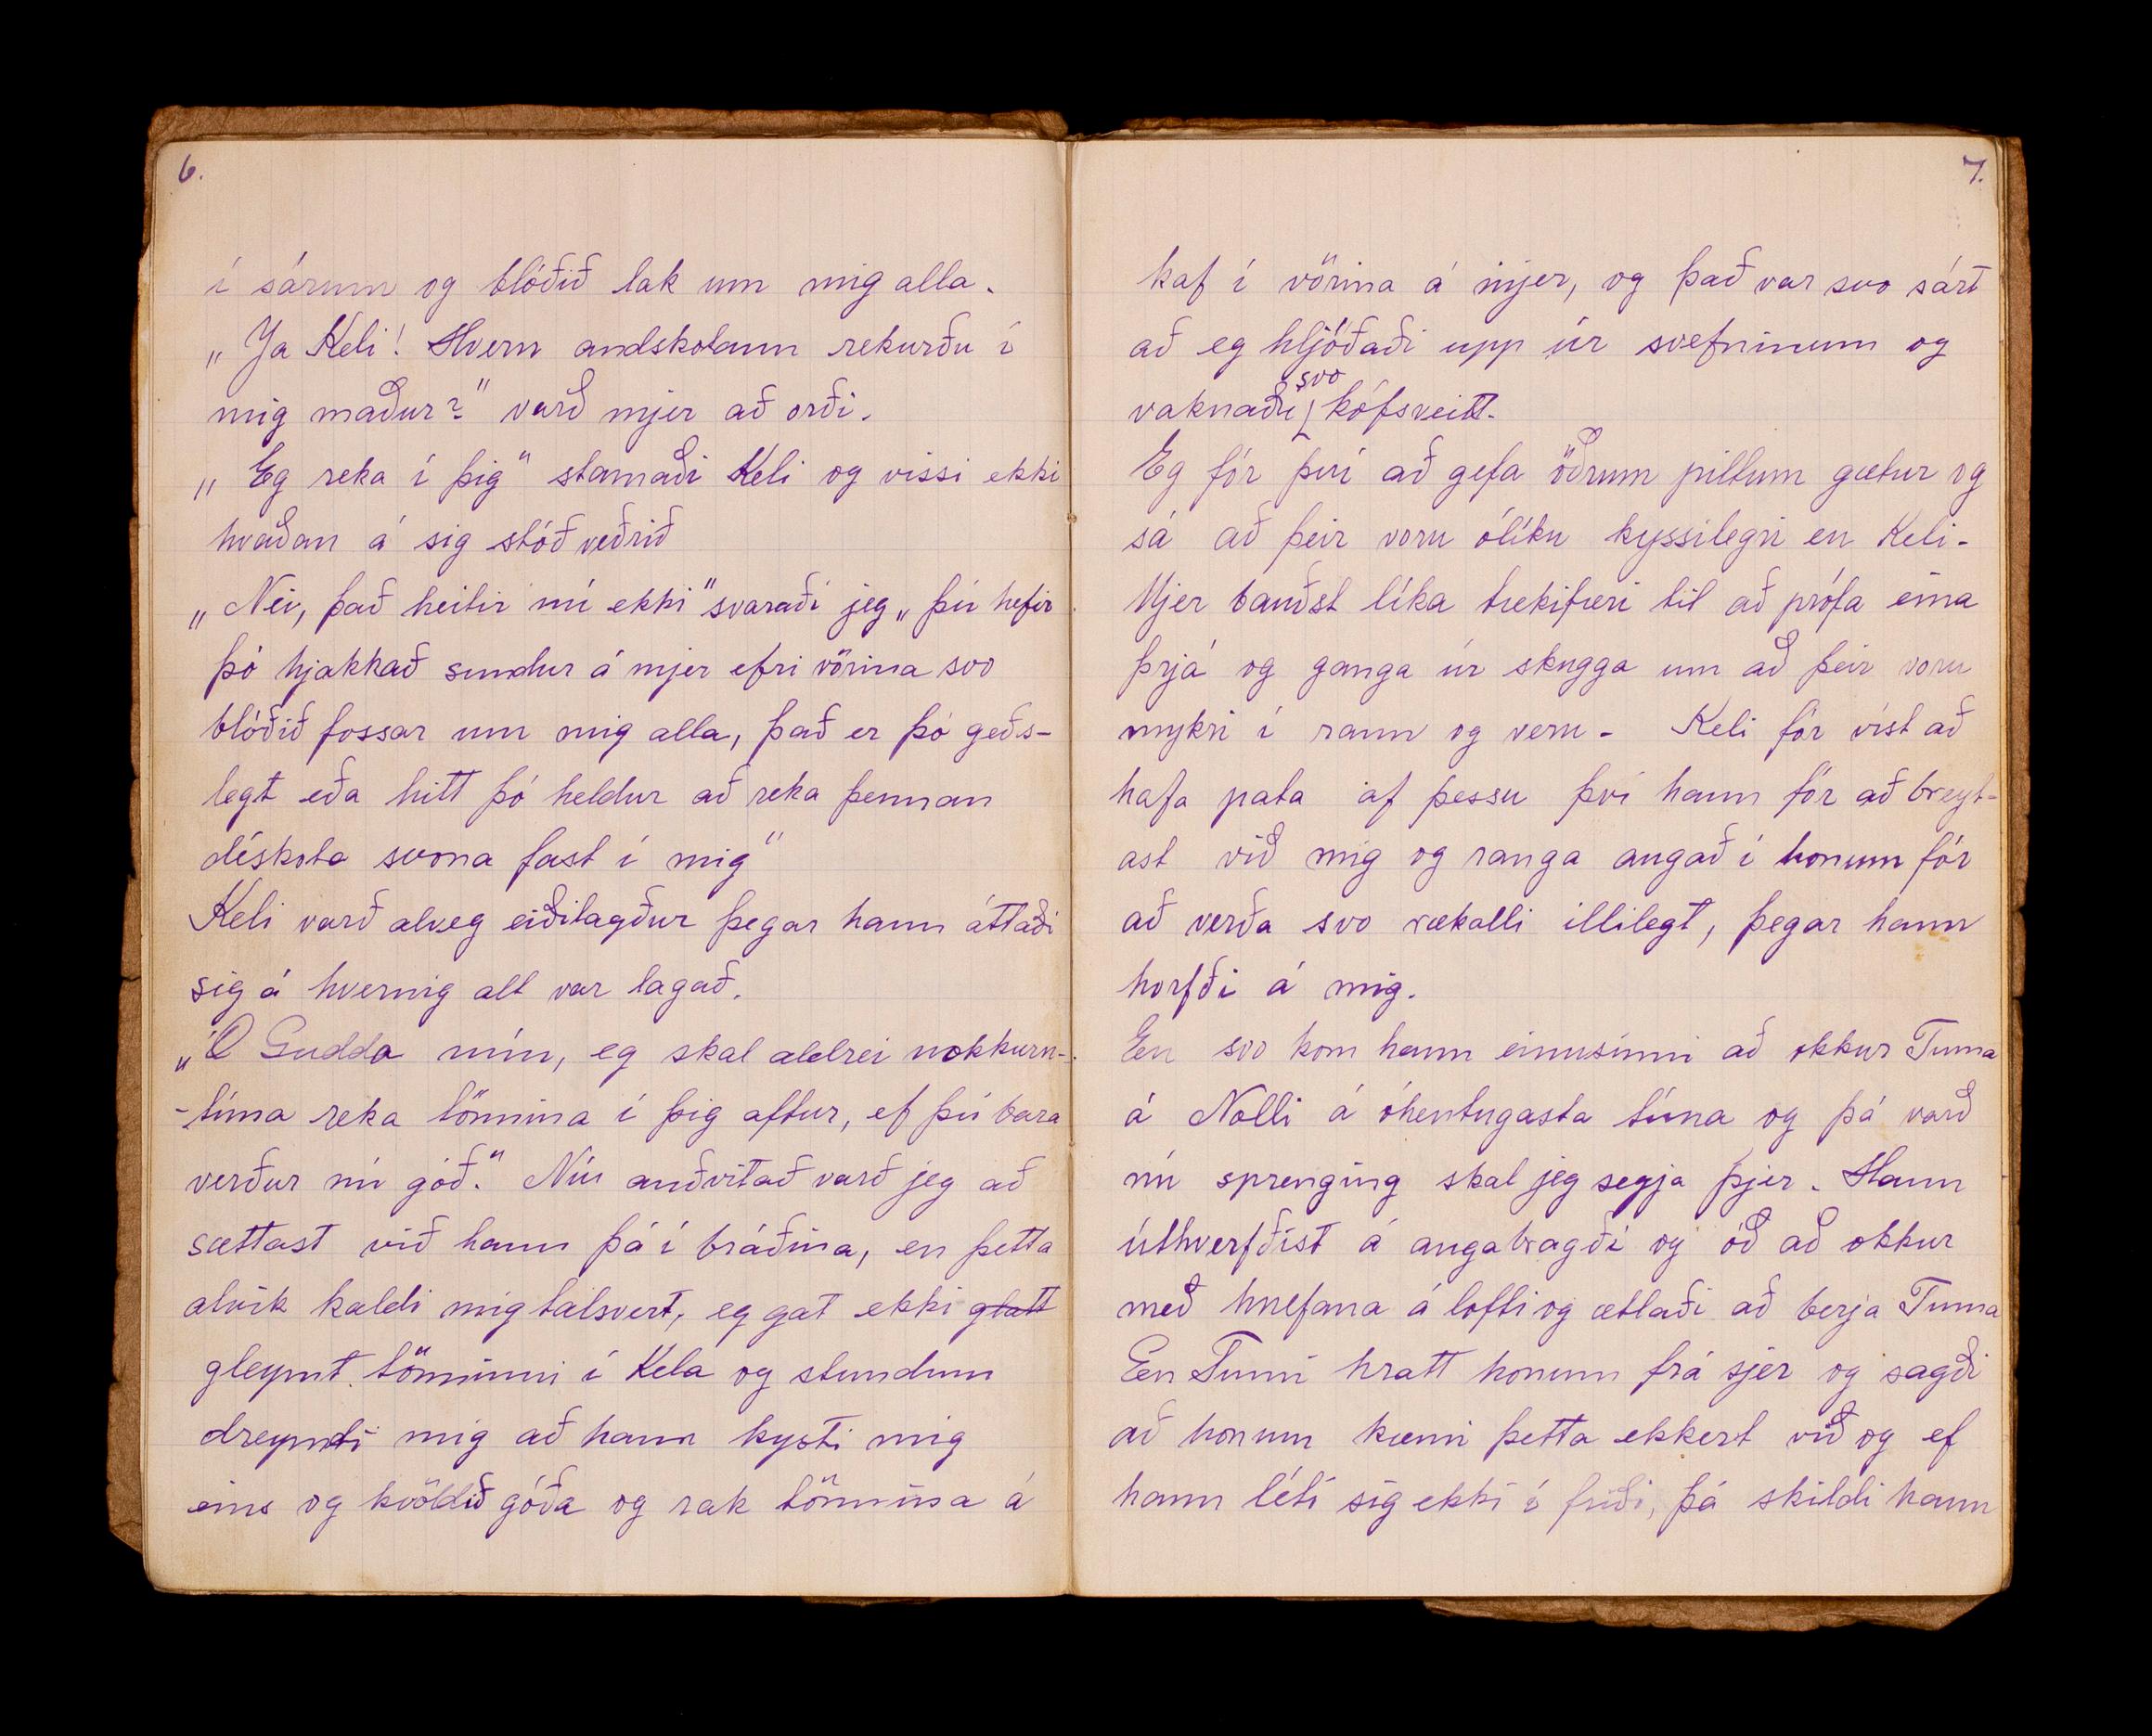 6.
í sárum og blóðið lak um mig alla.
„Ja Keli! Hvern andskotann rekurðu í
mig maður?" varð mjer að orði.
„Eg reka í þig" stamaði Keli og vissi ekki
hvaðan á sig stóð veðrið
„Nei, það heitir nú ekki" svaraði jeg „þú hefir
þó hjakkað sundur á mjer efri vörina svo
blóðið fossar um mig alla, það er þó geðs-
legt eða hitt þó heldur að reka þennan
déskota svona fast í mig"
Keli varð alveg eiðilagður þegar hann áttaði
sig á hvernig alt var lagað.
„Ó Gudda mín, eg skal aldrei nokkurn-
-tíma reka tönnina í þig aftur, ef þú bara
verður nú góð." Nú auðvitað varð jeg að
sættast við hann þá í bráðina, en þetta
atvik kældi mig talsvert, eg gat ekki glatt
gleymt tönninni í Kela og stundum
dreymdi mig að hann kysti mig
eins og kvöldið góða og rak tönnina á
7.
kaf í vörina á mjer, og það var svo sárt
að eg hljóðaði upp úr svefninum og
vaknaði svo kófsveitt.
Eg fór því að gefa öðrum piltum gætur og
sá að þeir voru ólíku kyssilegri en Keli-
Mjer bauðst líka tækifæri til að prófa eina
þrjá og ganga úr skugga um að þeir voru
mykri í raun og veru - Keli fór víst að
hafa pata af þessu því hann fór að breyt-
ast við mig og ranga augað í honum fór
að verða svo rækalli illilegt, þegar hann
horfði á mig.
En svo kom hann einusinni að okkur Tuma
á Nolli á óhentugasta tíma og þá varð
nú sprenging skal jeg segja þjer. Hann
úthverfðist á augabragði og óð að okkur
með hnefana á lofti og ætlaði að berja Tuma
En Tumi hratt honum frá sjer og sagði
að honum kæmi þetta ekkert við og ef
hann léti sig ekki í friði, þá skildi hann